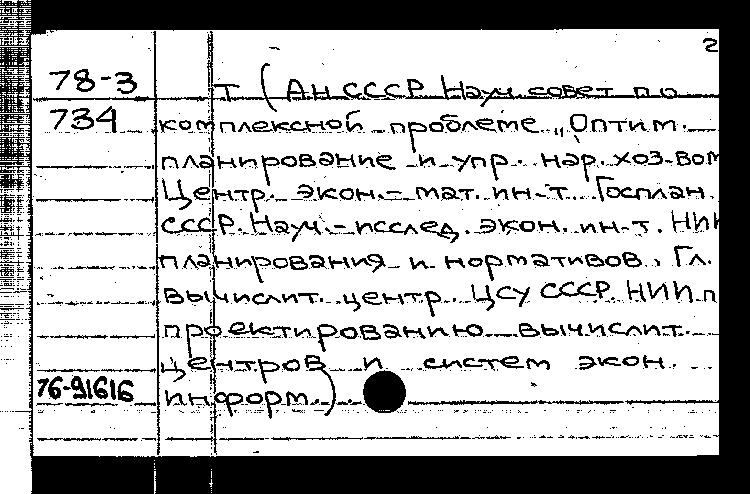 2
78-3 Т (АН СССР. Науч. совет по
734 комплексной проблеме „Оптим.
планирование и упр. нар. хоз-вом
Центр. экон.-мат. ин-т. Госплан
СССР. Науч.-исслед. экон. ин-т. НИИ
планирования и нормативов. Гл.
вычислит. центр. ЦСУ СССР. НИИ п
проектированию вычислит.
центров и систем экон.
76-91616 информ.)